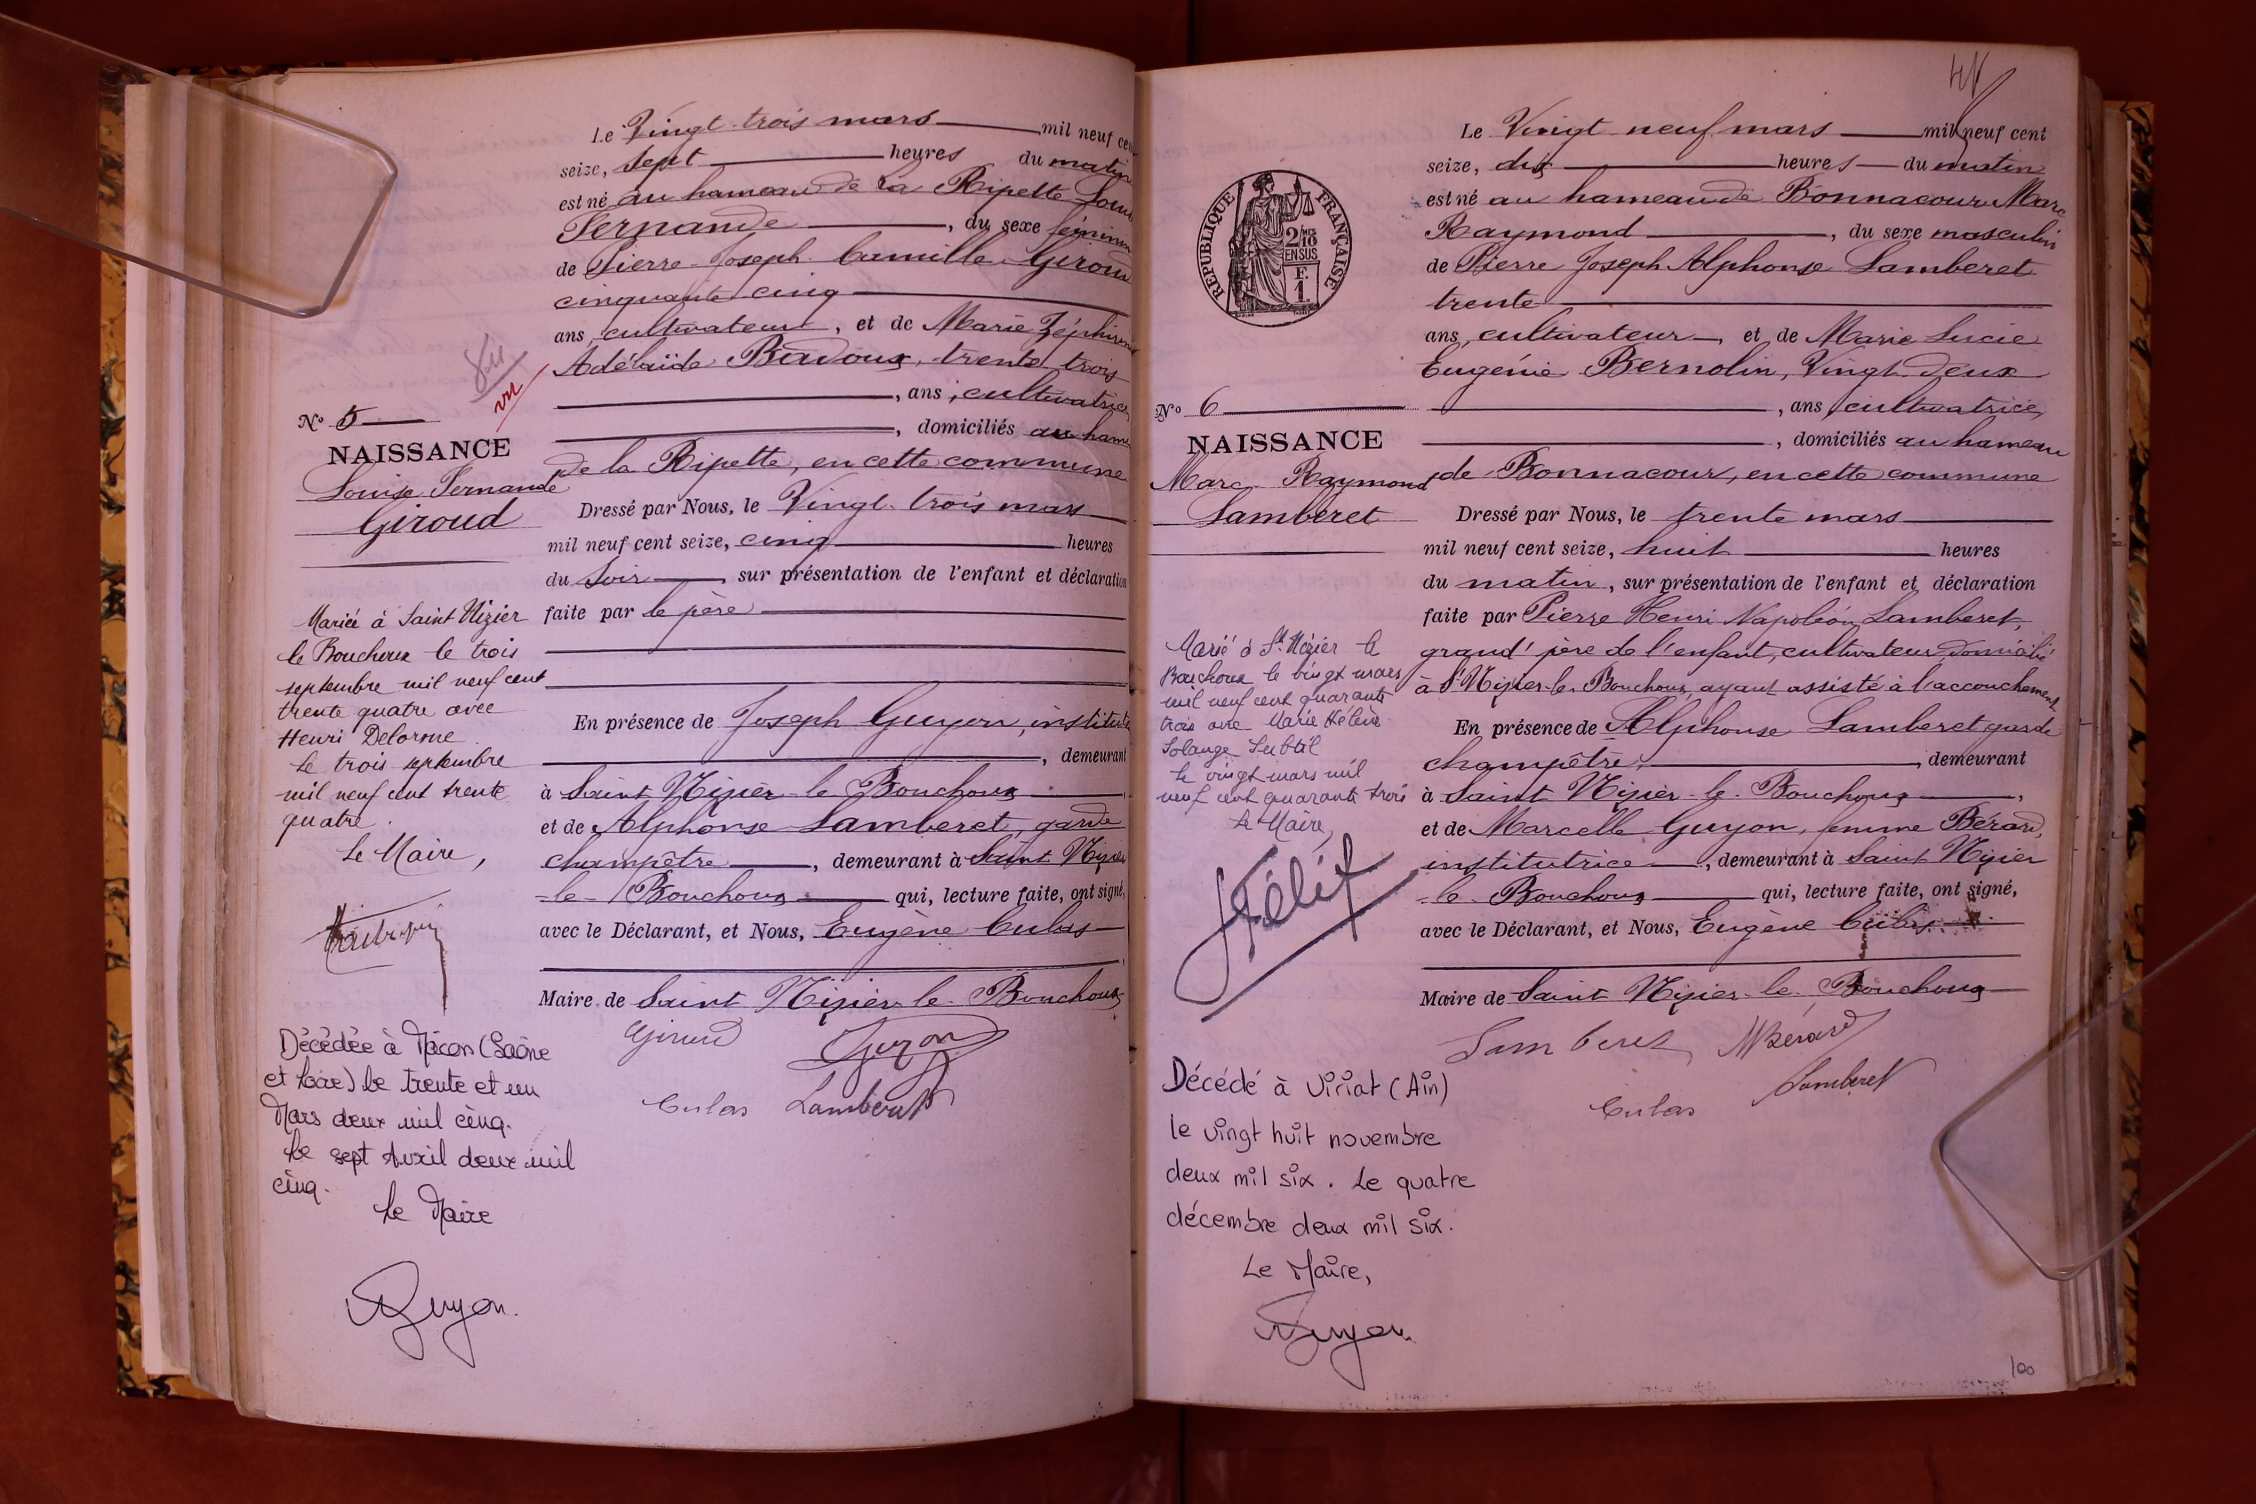 Le Vingt trois mars mil neuf cent
seize, sept heures du matin
est né au hameau de la Ripette Louise
Fernande, du sexe féminin
de Pierre Joseph Camille Giroud
cinquante cinq
ans, cultivateur, et de Marie Zéphirine
Adélaïde Badoux, trente trois
, ans, cultivatrice,
, domiciliés au hameau
de la Ripette, en cette commune
Dressé par Nous, le Vingt trois mars
mil neuf cent seize, cinq heures
du soir, sur présentation de l'enfant et déclaration
faite par le père
En présence de Joseph Guyon, instituteur
, demeurant
à Saint Nizier le Bouchoux,
et de Alphonse Lamberet, garde
champêtre, demeurant à Saint Nizier
-le-Bouchoux qui, lecture faite, ont signé,
avec le Déclarant, et Nous, Eugène Culas
Maire de Saint Nizier le Bouchoux
Giroud Guyon
Culas Lamberet
vu
No 5
NAISSANCE
Louise Fernande
Giroud
Mariée à Saint Nizier
le Bouchoux le trois
septembre mil neuf cent
trente quatre avec
Henri Delorme
Le trois septembre
mil neuf cent trente
quatre.
Le Maire,
Décédée à Mâcon (Saône
et Loire) le trente et un
Mars deux mil cinq.
Le sept Avril deux mil
cinq.
Le Maire
Guyon.
Le Vingt neuf mars mil neuf cent
seize, dix heures du matin
est né au hameau de Bonnacour Marc
Raymond, du sexe masculin
de Pierre Joseph Alphonse Lamberet
trente
ans, cultivateur, et de Marie Lucie
Eugénie Bernolin, Vingt deux
, ans, cultivatrice,
, domiciliés au hameau
de Bonnacour, en cette commune
Dressé par Nous, le trente mars
mil neuf cent seize, huit heures
du matin, sur présentation de l'enfant et déclaration
faite par Pierre Henri Napoléon Lamberet,
grand'père de l'enfant, cultivateur domicilié
à St Nizier-le-Bouchoux, ayant assisté à l'accouchement
En présence de Alphonse Lamberet garde
champêtre, demeurant
à Saint Nizier-le-Bouchoux,
et de Marcelle Guyon, femme Bérard,
institutrice, demeurant à Saint Nizier
-le-Bouchoux qui, lecture faite, ont signé,
avec le Déclarant, et Nous, Eugène Culas
Maire de Saint Nizier-le-Bouchoux
Lamberet MBérard
Culas Lamberet
RÉPUBLIQUE FRANÇAISE
2/10
EN SUS
F.
1.
No 6
NAISSANCE
Marc Raymond
Lamberet
Marié à St Nizier le
Bouchoux le vingt mars
mil neuf cent quarante
trois avec Marie Hélène
Solange Subtil
Le vingt mars mil
neuf cent quarante trois
Le Maire,
Félix
Décédé à Viriat (Ain)
le vingt huit novembre
deux mil six. Le quatre
décembre deux mil six.
Le Maire,
Guyon.
100